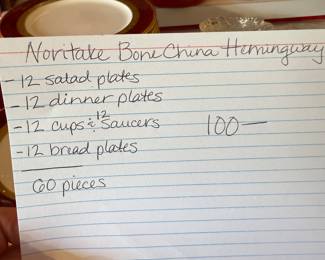 Noritake Bone China Hemingway
- 12 salad plates
- 12 dinner plates
- 12 cups & 12 saucers
100—
- 12 bread plates
60 pieces